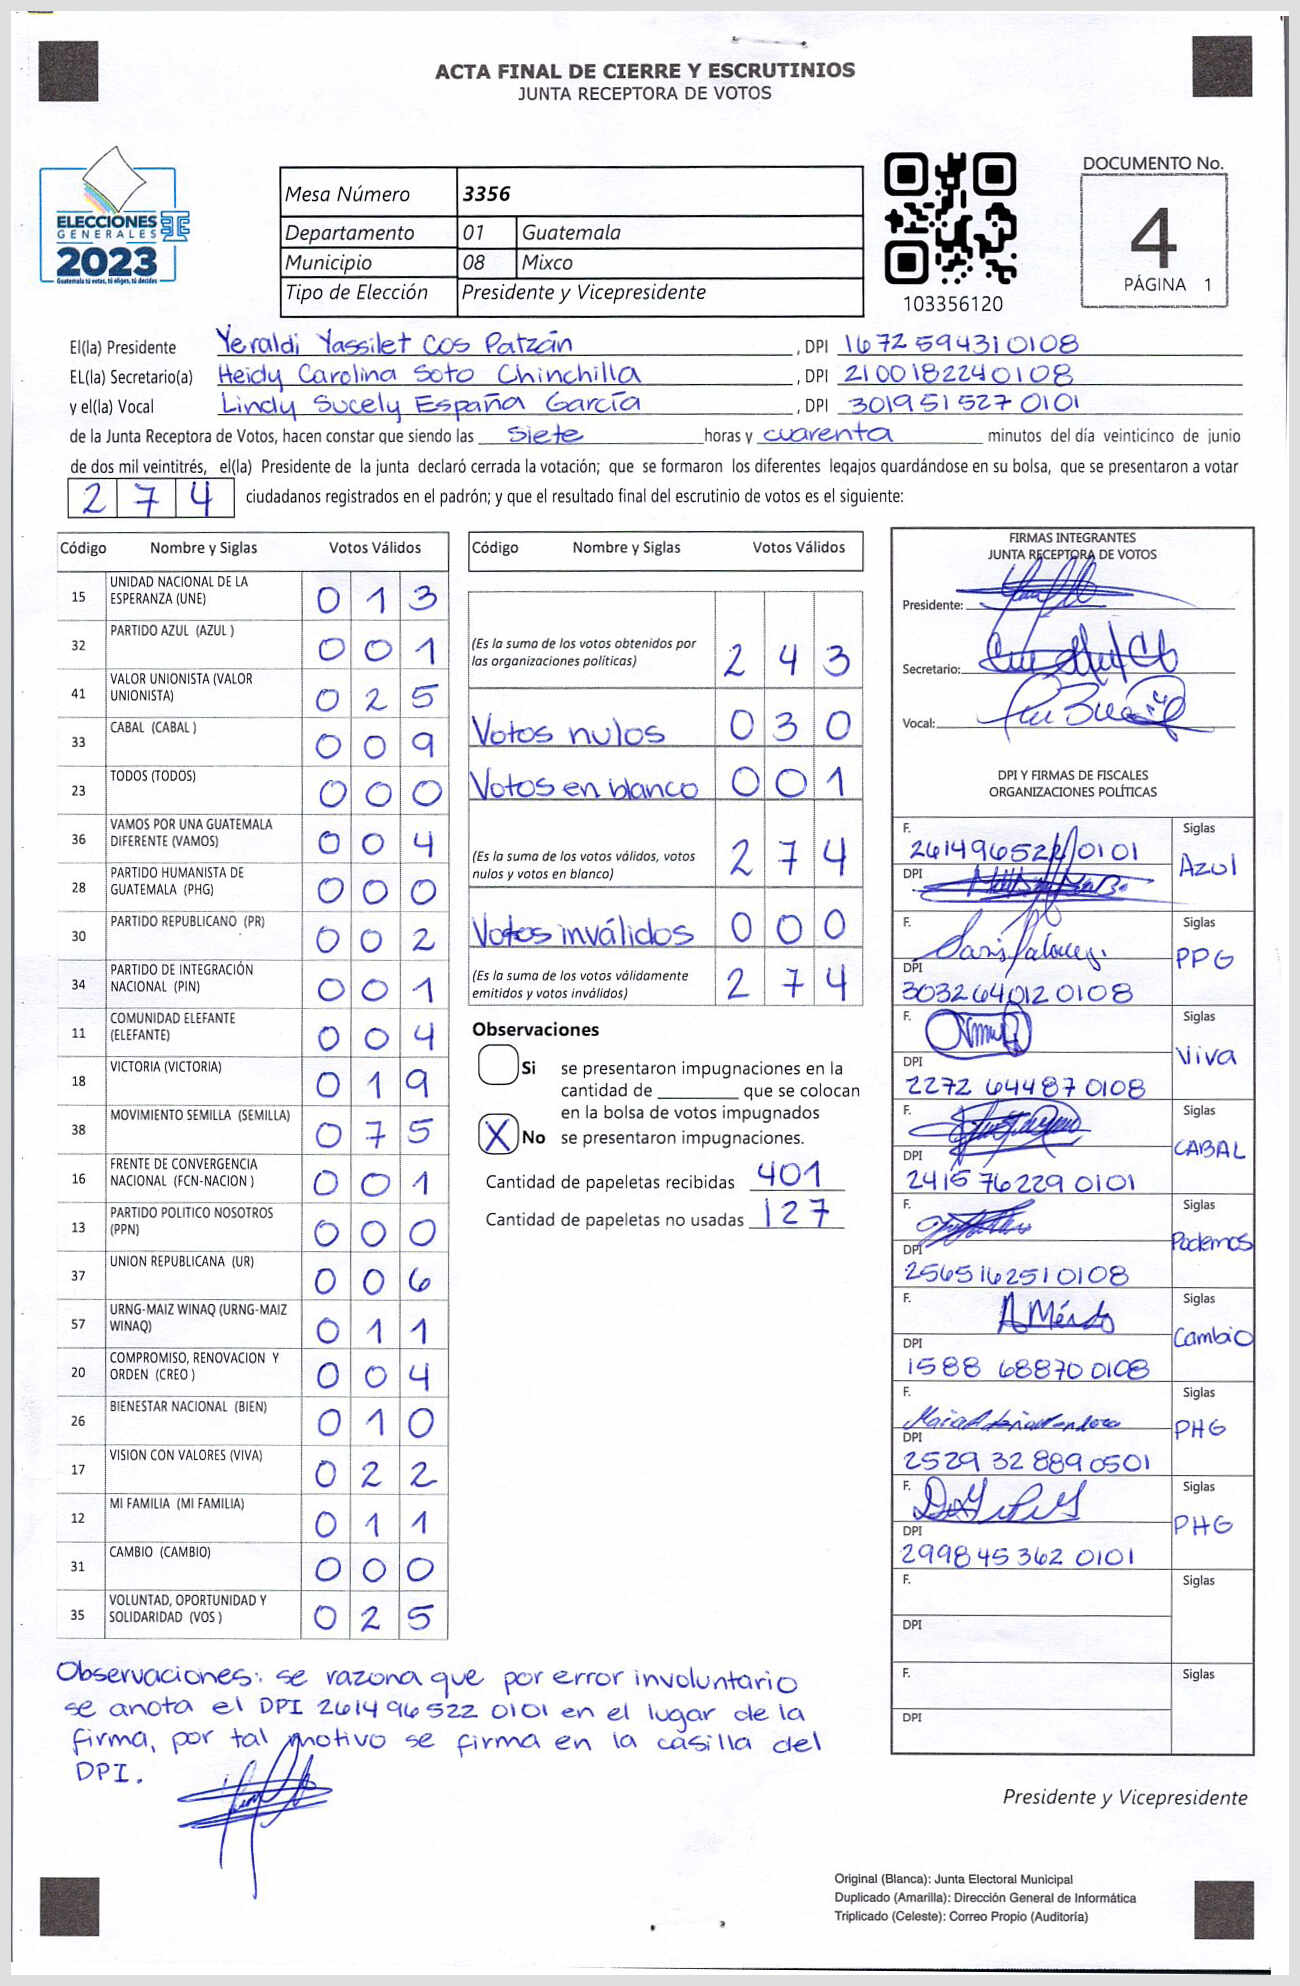 ACTA FINAL DE CIERRE Y ESCRUTINIOS
JUNTA RECEPTORA DE VOTOS
ELECCIONES
GENERALES
2023
Guatemala tú votas, tú eliges, tú decides
Mesa Número 3356
Departamento 01 Guatemala
Municipio 08 Mixco
Tipo de Elección Presidente y Vicepresidente
103356120
DOCUMENTO No.
4
PÁGINA 1
El(la) Presidente Yeraldi Yassilet Cos Patzán, DPI 1672594310108
EL(la) Secretario(a) Heidy Carolina Soto Chinchilla, DPI 2100182240108
y el(la) Vocal Lindy Sucely España García, DPI 3019515270101
de la Junta Receptora de Votos, hacen constar que siendo las siete horas y cuarenta minutos del día veinticinco de junio
de dos mil veintitrés, el(la) Presidente de la junta declaró cerrada la votación; que se formaron los diferentes legajos guardándose en su bolsa, que se presentaron a votar
274 ciudadanos registrados en el padrón; y que el resultado final del escrutinio de votos es el siguiente:
Código Nombre y Siglas Votos Válidos
15 UNIDAD NACIONAL DE LA ESPERANZA (UNE) 013
32 PARTIDO AZUL (AZUL ) 001
41 VALOR UNIONISTA (VALOR UNIONISTA) 025
33 CABAL (CABAL ) 009
23 TODOS (TODOS) 000
36 VAMOS POR UNA GUATEMALA DIFERENTE (VAMOS) 004
28 PARTIDO HUMANISTA DE GUATEMALA (PHG) 000
30 PARTIDO REPUBLICANO (PR) 002
34 PARTIDO DE INTEGRACIÓN NACIONAL (PIN) 001
11 COMUNIDAD ELEFANTE (ELEFANTE) 004
18 VICTORIA (VICTORIA) 019
38 MOVIMIENTO SEMILLA (SEMILLA) 075
16 FRENTE DE CONVERGENCIA NACIONAL (FCN-NACION ) 001
13 PARTIDO POLITICO NOSOTROS (PPN) 000
37 UNION REPUBLICANA (UR) 006
57 URNG-MAIZ WINAQ (URNG-MAIZ WINAQ) 011
20 COMPROMISO, RENOVACION Y ORDEN (CREO ) 004
26 BIENESTAR NACIONAL (BIEN) 010
17 VISION CON VALORES (VIVA) 022
12 MI FAMILIA (MI FAMILIA) 011
31 CAMBIO (CAMBIO) 000
35 VOLUNTAD, OPORTUNIDAD Y SOLIDARIDAD (VOS ) 025
Código Nombre y Siglas Votos Válidos
(Es la suma de los votos obtenidos por las organizaciones políticas) 243
Votos nulos 030
Votos en blanco 001
(Es la suma de los votos válidos, votos nulos y votos en blanco) 274
Votos inválidos 000
(Es la suma de los votos válidamente emitidos y votos inválidos) 274
Observaciones
Si se presentaron impugnaciones en la
cantidad de ________ que se colocan
en la bolsa de votos impugnados
X No se presentaron impugnaciones.
Cantidad de papeletas recibidas 401
Cantidad de papeletas no usadas 127
FIRMAS INTEGRANTES
JUNTA RECEPTORA DE VOTOS
Presidente:
Secretario:
Vocal:
DPI Y FIRMAS DE FISCALES
ORGANIZACIONES POLÍTICAS
F. 2614965220101 Siglas
DPI Azul
F. Siglas
DPI PPG
3032640120108
F. Siglas
DPI Viva
2272 64487 0108
F. Siglas
DPI CABAL
2415 76229 0101
F. Siglas
DPI Podemos
2565162510108
F. Siglas
DPI Cambio
1588 68870 0108
F. Siglas
DPI PHG
2529 32 889 0501
F. Siglas
DPI PHG
2998 45 362 0101
F. Siglas
DPI
F. Siglas
DPI
Observaciones: se razona que por error involuntario
se anota el DPI 2614 96 522 0101 en el lugar de la
firma, por tal motivo se firma en la casilla del
DPI.
Presidente y Vicepresidente
Original (Blanca): Junta Electoral Municipal
Duplicado (Amarilla): Dirección General de Informática
Triplicado (Celeste): Correo Propio (Auditoría)